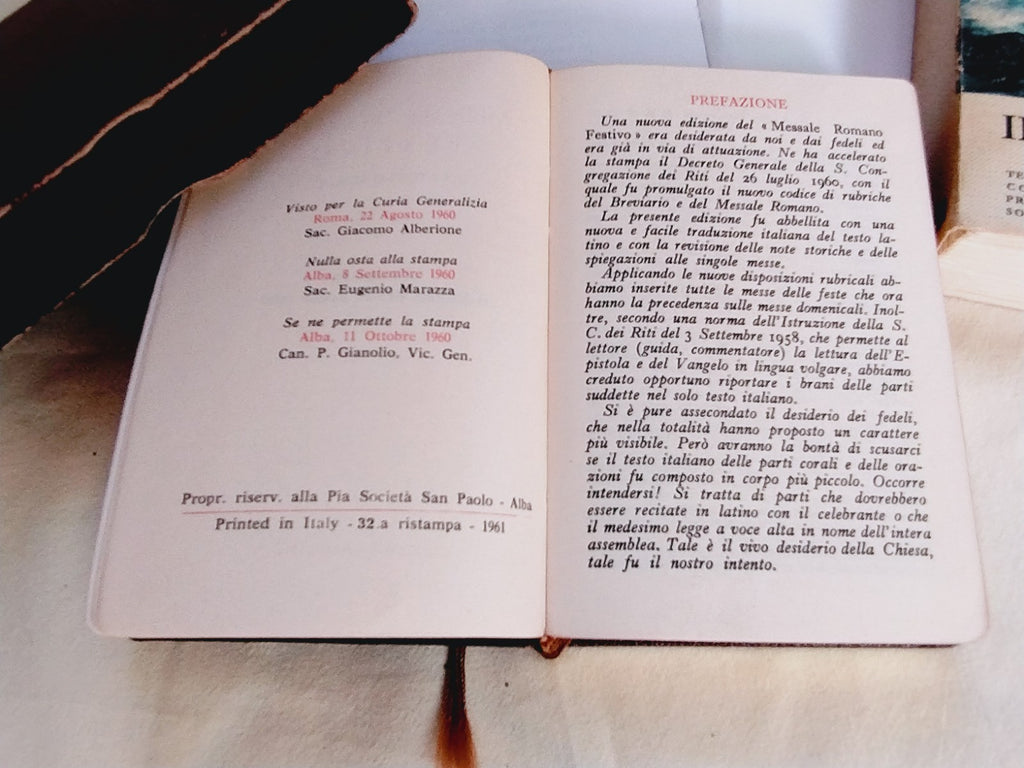 Visto per la Curia Generalizia
Roma, 22 Agosto 1960
Sac. Giacomo Alberione
Nulla osta alla stampa
Alba, 8 Settembre 1960
Sac. Eugenio Marazza
Se ne permette la stampa
Alba, 11 Ottobre 1960
Can. P. Gianolio, Vic. Gen.
Propr. riserv. alla Pia Società San Paolo - Alba
Printed in Italy - 32.a ristampa - 1961
PREFAZIONE
Una nuova edizione del « Messale Romano
Festivo » era desiderata da noi e dai fedeli ed
era già in via di attuazione. Ne ha accelerato
la stampa il Decreto Generale della S. Con-
gregazione dei Riti del 26 luglio 1960, con il
quale fu promulgato il nuovo codice di rubriche
del Breviario e del Messale Romano.
La presente edizione fu abbellita con una
nuova e facile traduzione italiana del testo la-
tino e con la revisione delle note storiche e delle
spiegazioni alle singole messe.
Applicando le nuove disposizioni rubricali ab-
biamo inserite tutte le messe delle feste che ora
hanno la precedenza sulle messe domenicali. Inol-
tre, secondo una norma dell'Istruzione della S.
C. dei Riti del 3 Settembre 1958, che permette al
lettore (guida, commentatore) la lettura dell'E-
pistola e del Vangelo in lingua volgare, abbiamo
creduto opportuno riportare i brani delle parti
suddette nel solo testo italiano.
Si è pure assecondato il desiderio dei fedeli,
che nella totalità hanno proposto un carattere
più visibile. Però avranno la bontà di scusarci
se il testo italiano delle parti corali e delle ora-
zioni fu composto in corpo più piccolo. Occorre
intendersi! Si tratta di parti che dovrebbero
essere recitate in latino con il celebrante o che
il medesimo legge a voce alta in nome dell'intera
assemblea. Tale è il vivo desiderio della Chiesa,
tale fu il nostro intento.